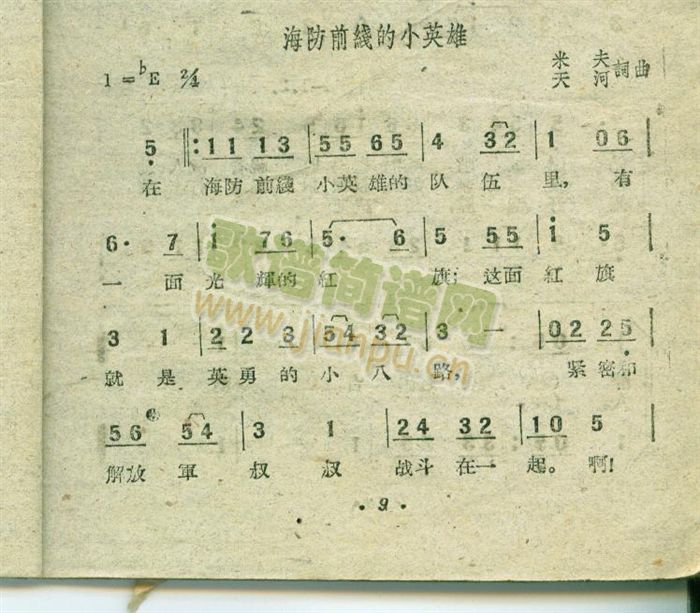 海防前綫的小英雄
1=♭E 2/4
米夫
天河 詞曲
5 ‖: 1 1 1 3 | 5 5 6 5 | 4 3 2 | 1 0 6 |
在 海防 前綫 小英 雄的 队 伍 里, 有
6· 7 | i 7 6 | 5· 6 | 5 5 5 | i 5
一 面 光 輝的 紅 旗; 这面 紅 旗
3 1 | 2 2 3 | 5 4 3 2 | 3 一 | 0 2 2 5 |
就 是 英 勇 的 小 八 路, 紧 密和
5 6 5 4 | 3 1 | 2 4 3 2 | 1 0 5 |
解放 軍 叔 叔 战斗 在一 起。 啊!
· 9 ·
歌谱简谱网
www.jianpu.cn